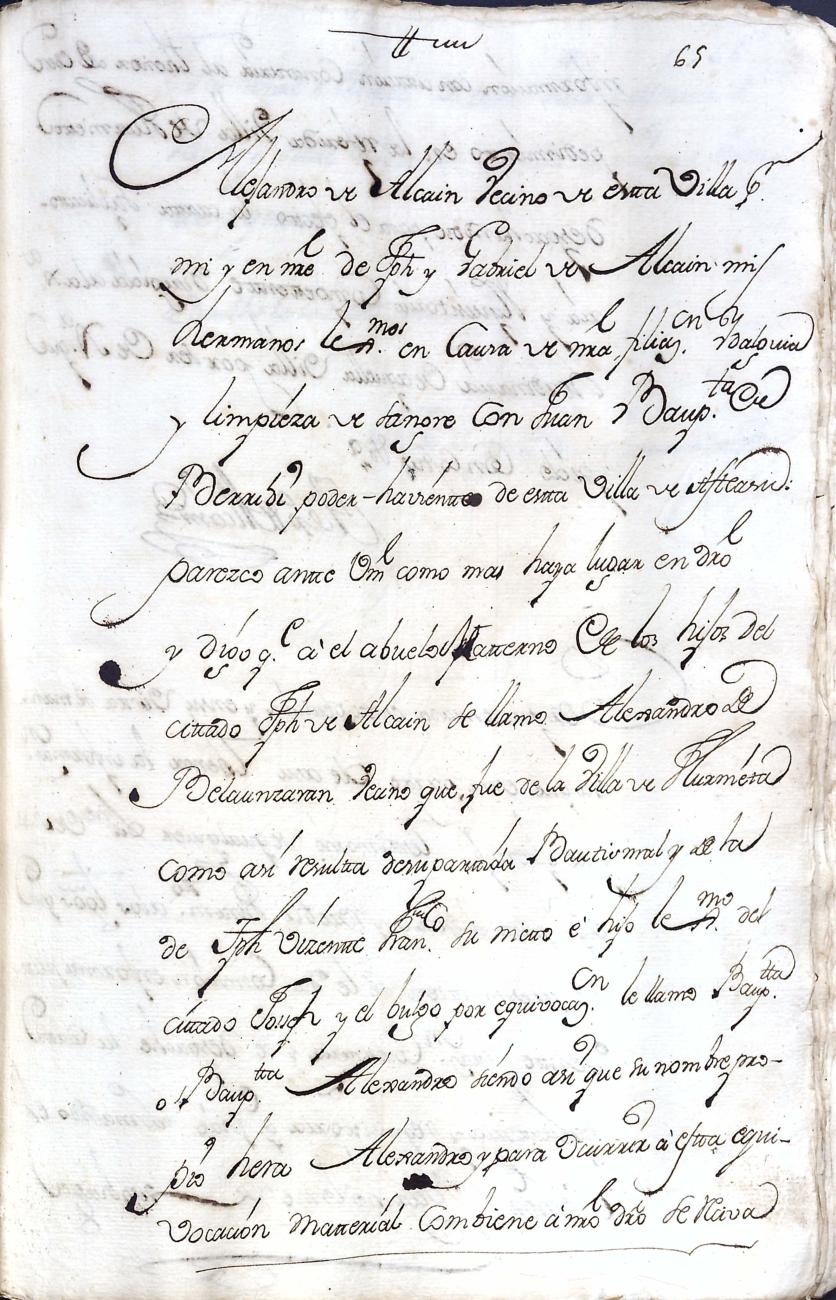 65
Alejandro de Alcain Vecino de estta Villa Pr.
mi y en nre de Jph y Gabriel de Alcain mis
hermanos lexmos en Causa de nra filiacn. Ydalguia
y limpiéza de sangre Con Juan Baupta de
Berridi poder-haviéntte de estta Villa de Asteasu:
parezco antte Vm como mas haya lugar en dro
y digo qe a el abuelo Matterno de los hijos del
cittado Jph de Alcain se llamo Alexandro de
Belaunzaran Vecino que fue de la Villa de Hurniéta
como asi resultta de su parttida Bauttismal y de la
de Jph Vizentte Franco. su nietto e hijo lexmo. del
cittado Joseph y el bulgo por equivocacn. le llamo Bauptta.
o Bauptta. Alexandro siéndo asi que su nombre pro-
pio hera Alexandro y para Ocurrir a estta equi-
vocación matteriál Combiene a mro dro se Reciva